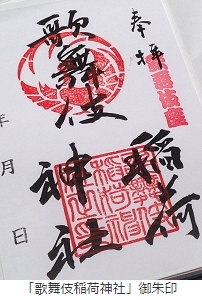 奉拝
歌舞伎座
歌舞伎
稲荷
神社
年 月 日
「歌舞伎稲荷神社」御朱印